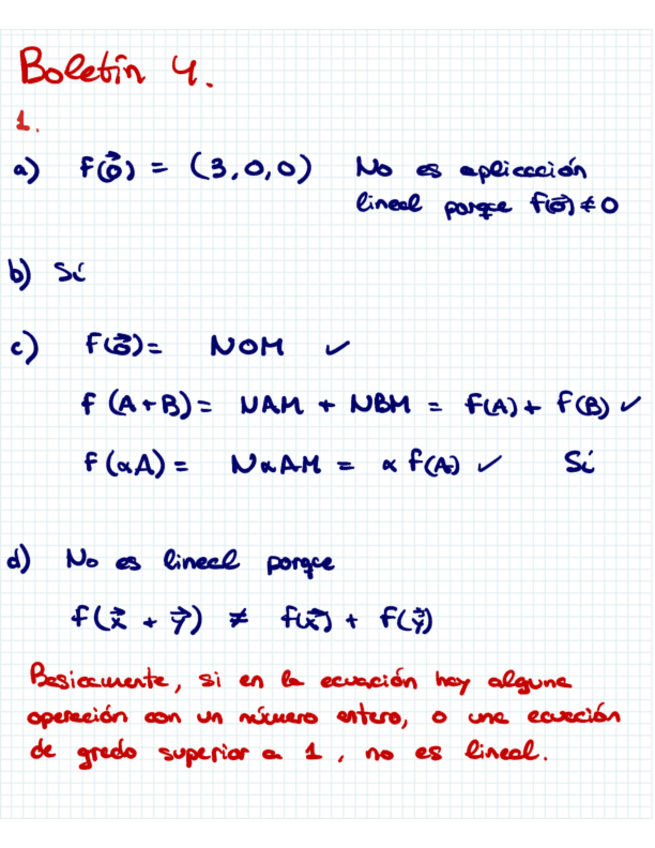 Boletín 4.
1.
a) f(0⃗) = (3,0,0) No es aplicación
lineal porque f(0⃗) ≠ 0
b) Sí
c) f(0⃗) = NOM ✓
f (A+B) = NAM + NBM = f(A) + f(B) ✓
f (αA) = NαAM = α f(A) ✓ Sí
d) No es lineal porque
f(x⃗ + y⃗) ≠ f(x⃗) + f(y⃗)
Basicamente, si en la ecuación hay alguna
operación con un número entero, o una ecuación
de grado superior a 1, no es lineal.